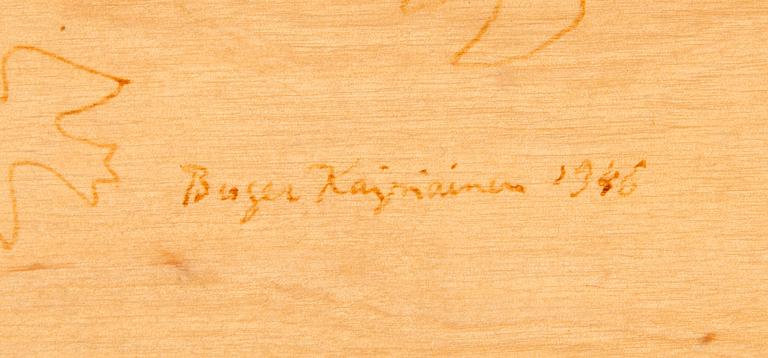 Birger Kajpiainen 1946